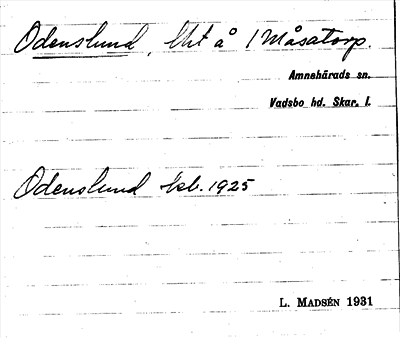 Odenslund, lht å 1 Måsatorp.
Amnehärads sn.
Vadsbo hd. Skar. l.
Odenslund tsb. 1925
L. MADSÉN 1931